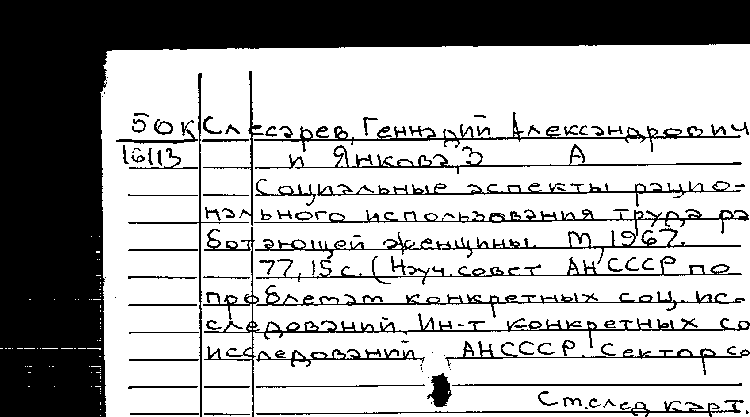 50к Слесарев, Геннадий Александрович
16113 и Янкова, З А
Социальные аспекты рацио-
нального использования труда ра
ботающей женщины. М, 1967.
77, 15 с. (Науч. совет АН СССР по
проблемам конкретных соц. ис-
следований. Ин-т конкретных со
исследований АН СССР. Сектор со
См. след карт.